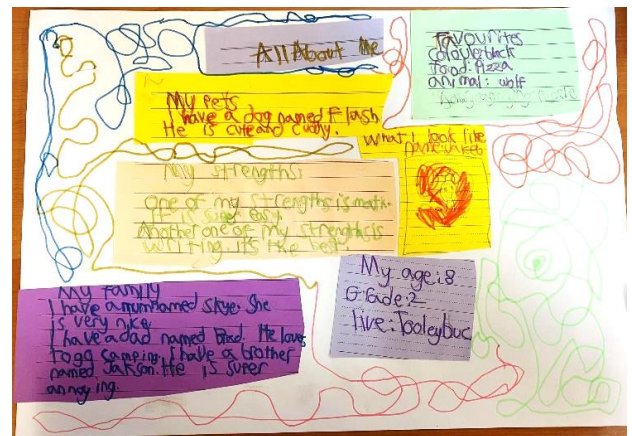 All About Me
Favourites
colour: black
food: Pizza
animal: wolf
My Pets
I have a dog named Flash
He is cute and cudhy.
What I look like
name:
My strengths:
One of my strengths is math.
It is super easy.
Another one of my strengths is
writing. it's the best
My age: 8
Grade: 2
live: Tooleybuc
My Family
I have a mum named Skye. She
is very nice
I have a dad named Brad. He loves
to go camping. I have a brother
named Jakson. He is super
annoying.